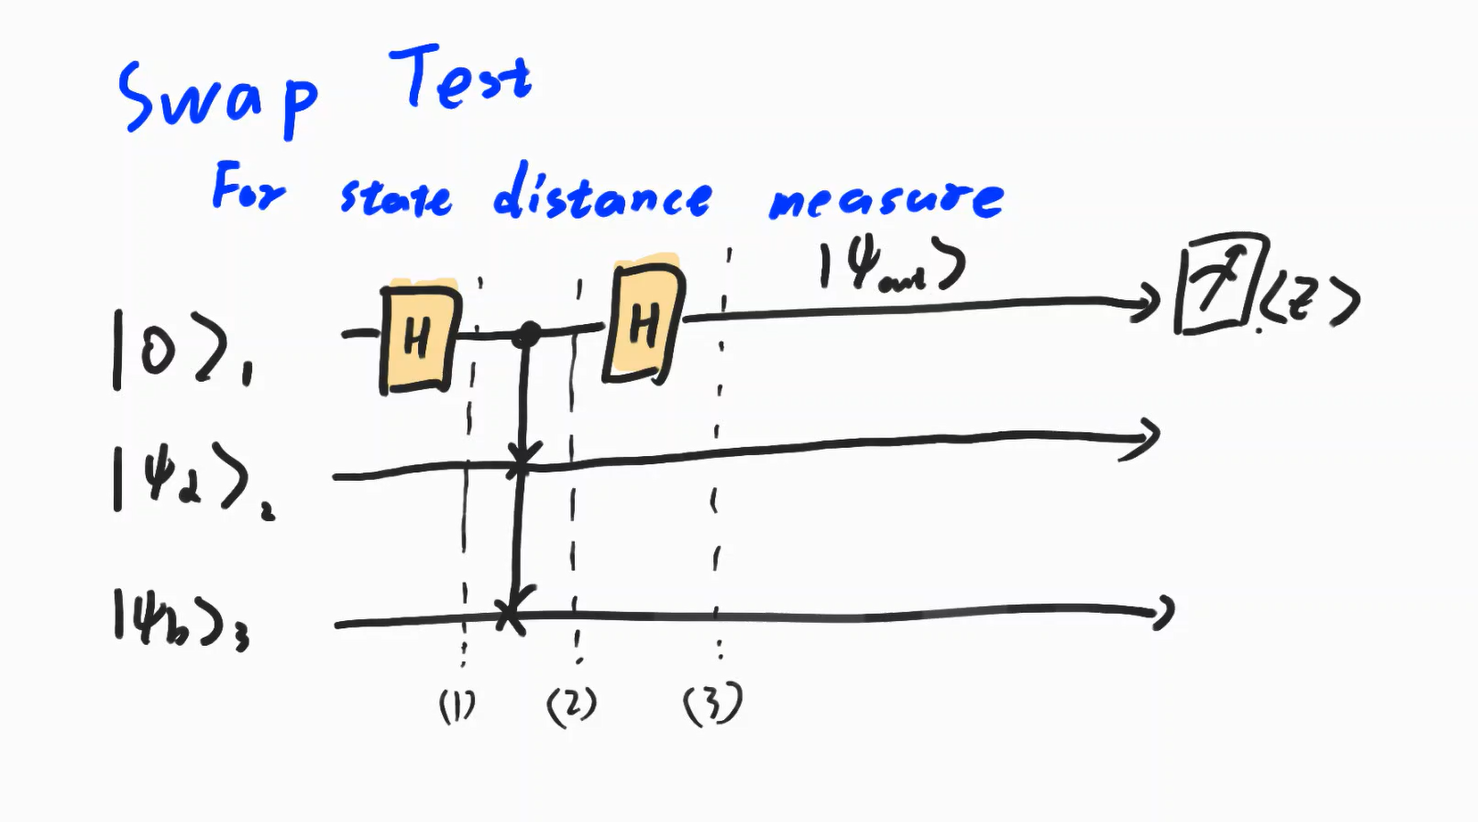 Swap Test
For state distance measure
|ψout⟩
H H ⟨Z⟩
|0⟩₁
|ψa⟩₂
|ψb⟩₃
(1) (2) (3)